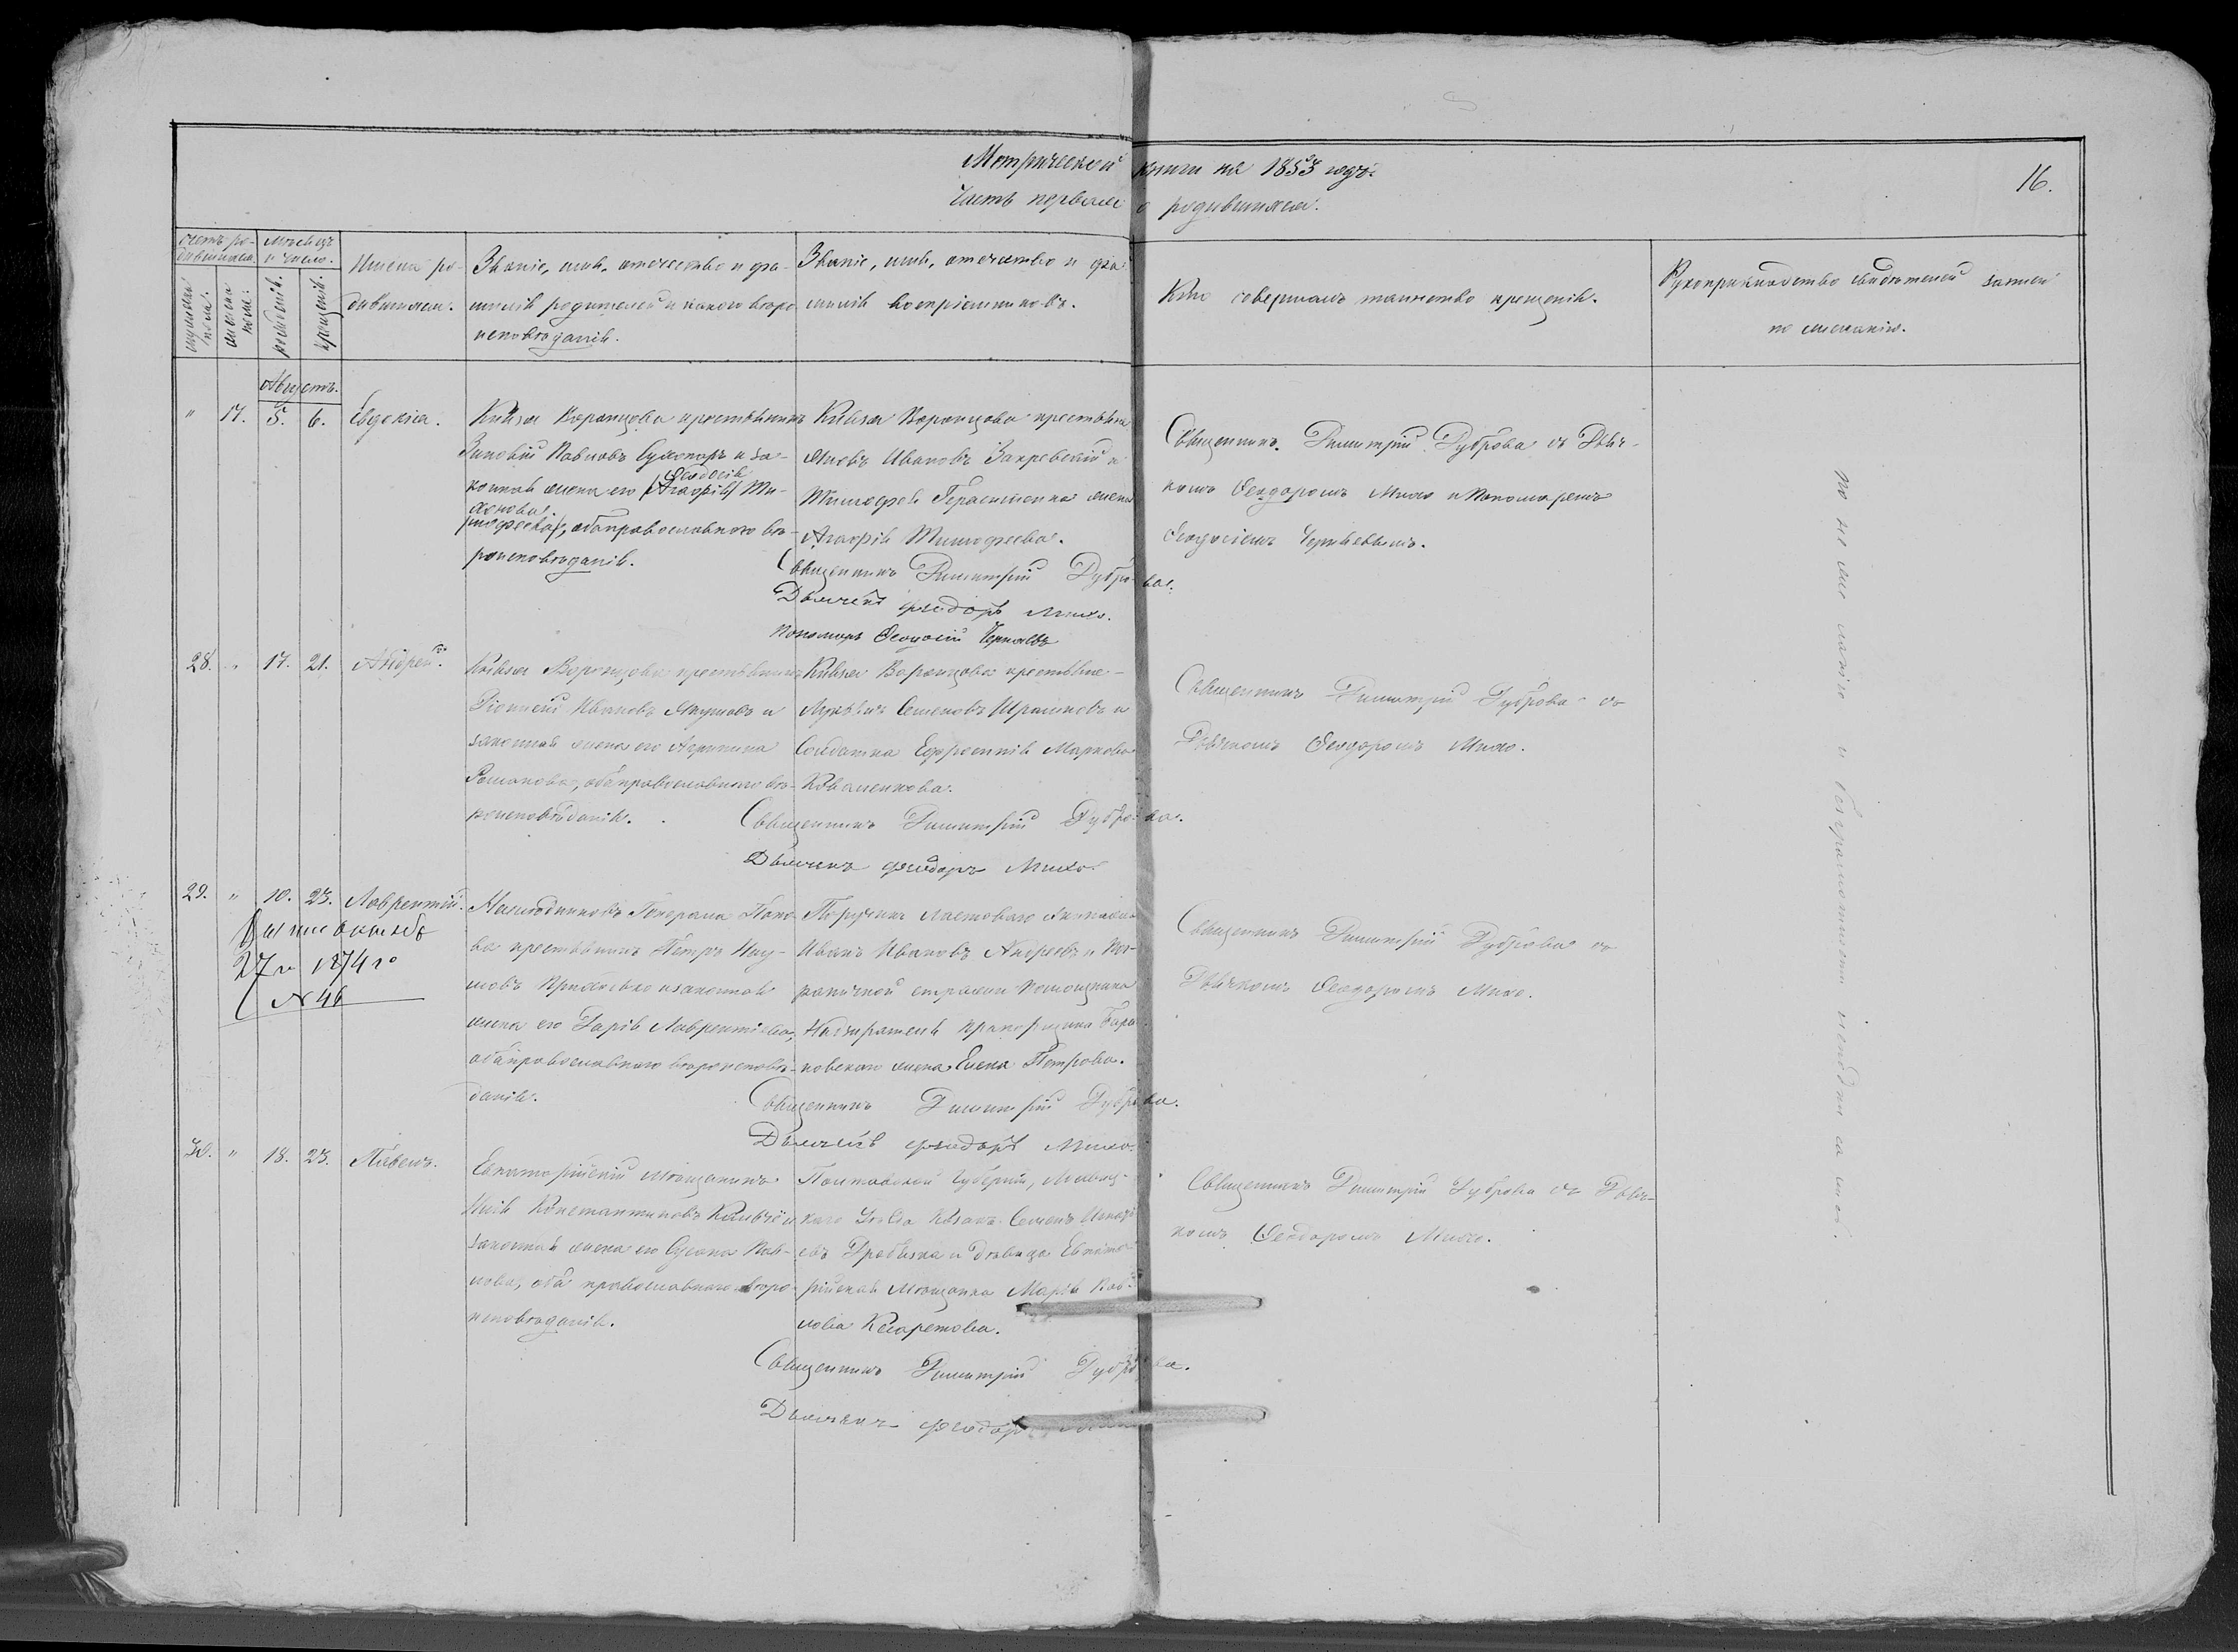 Метрической книги на 1853 годъ.
16.
Часть первая о родившихся.
счетъ ро-
дившихся.
мѣсяцъ
и число.
мужеска
пола.
женска
пола.
рожденія.
крещенія.
Имена ро-
дившихся.
Званіе, имя, отечество и фа-
милія родителей и какого вѣро
исповѣданія.
Званіе, имя, отечество и фа-
милія воспріемниковъ.
Кто совершалъ таинство крещенія.
Рукоприкладство свидѣтелей записи
по желанію.
Августъ.
" 17. 5. 6. Евдокіа.
Князя Воронцова крестьянинъ
Зиновій Павловъ и за-
конная жена его Феодосія (Агафія) Ти-
(мофеева), оба православнаго вѣ-
роисповѣданія.
Князя Воронцова крестьянинъ
Яковъ Ивановъ Закревскій и
Тимофея Герасименка жена
Агафія Тимофеева.
Священникъ Димитрій Дуброва.
Дьячекъ Феодоръ Михо.
Пономарь Феодосій Чернявъ
Священникъ Димитрій Дуброва съ Дьяч-
комъ Феодоромъ Михо и Пономаремъ
Феодосіемъ
28. " 17. 21. Андрей.
Князя Воронцова крестьянинъ
Діонисій Ивановъ Якушовъ и
законная жена его Агрипина
Романова, оба православнаго вѣ-
роисповѣданія.
Князя Воронцова крестьяне-
Лукьянъ Семеновъ и
Солдатка Ефросинія Маркова
Коваленкова.
Священникъ Димитрій Дуброва.
Дьячекъ Феодоръ Михо.
Священникъ Димитрій Дуброва съ
Дьячкомъ Феодоромъ Михо.
29. " 10. 23. Лаврентій.
27го 1874го
№ 46
Наслѣдниковъ Генерала Попо-
ва крестьянинъ Петръ Нау-
мовъ и законная
жена его Дарія Лаврентіева,
оба православнаго вѣроисповѣ-
данія.
Поручикъ Ластоваго Экипажа
Иванъ Ивановъ Андреевъ и По-
граничной стражи помощника
Надзирателя прапорщика
жена Елена Петрова.
Священникъ Димитрій Дуброва.
Дьячекъ Феодоръ Михо.
Священникъ Димитрій Дуброва съ
Дьячкомъ Феодоромъ Михо.
30. " 18. 23. Павелъ.
Евпаторійскій мѣщанинъ
Илія Константиновъ и
законная жена его Сусана Пав-
лова, оба православнаго вѣро-
исповѣданія.
Полтавской Губерніи,
Уѣзда Козакъ Семенъ
и дѣвица Евпато-
рійская мѣщанка Марія Пав-
лова
Священникъ Димитрій Дуброва.
Дьячекъ Феодоръ
Священникъ Димитрій Дуброва съ Дьяч-
комъ Феодоромъ Михо.